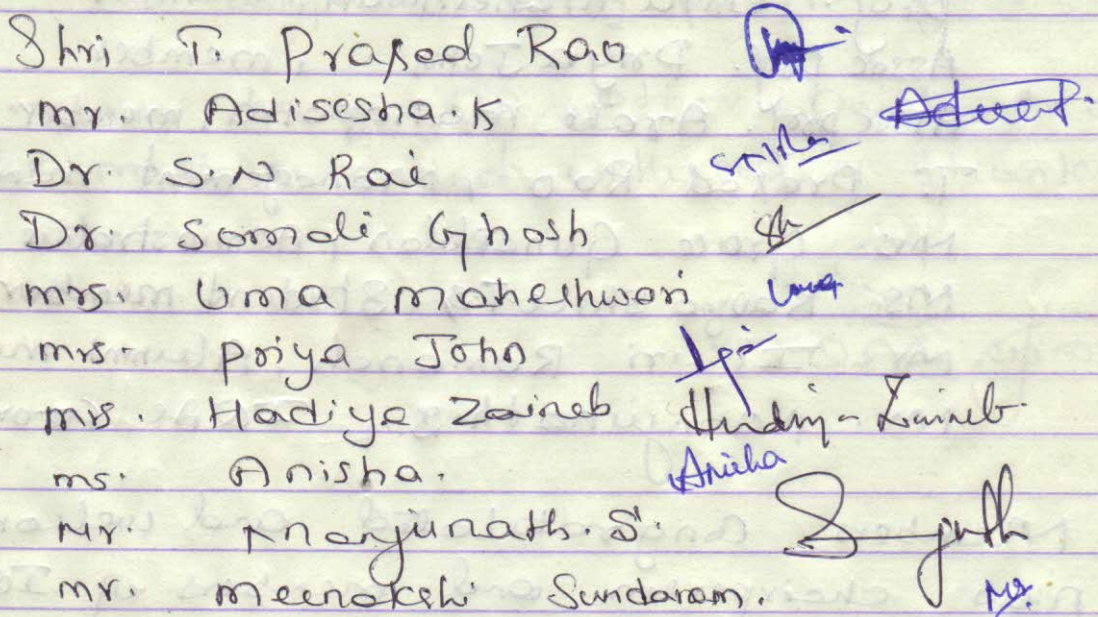 Shri T. Prasad Rao
mr. Adisesha.K
Dr. S.N Rai
Dr. Somali Ghosh
mrs. Uma maheshwari Uma
mrs. priya John
mrs. Hadiya Zaineb Hadiy-Zaineb.
ms. Anisha. Anisha
Mr. Manjunath.S.
mr. Meenakshi Sundaram.